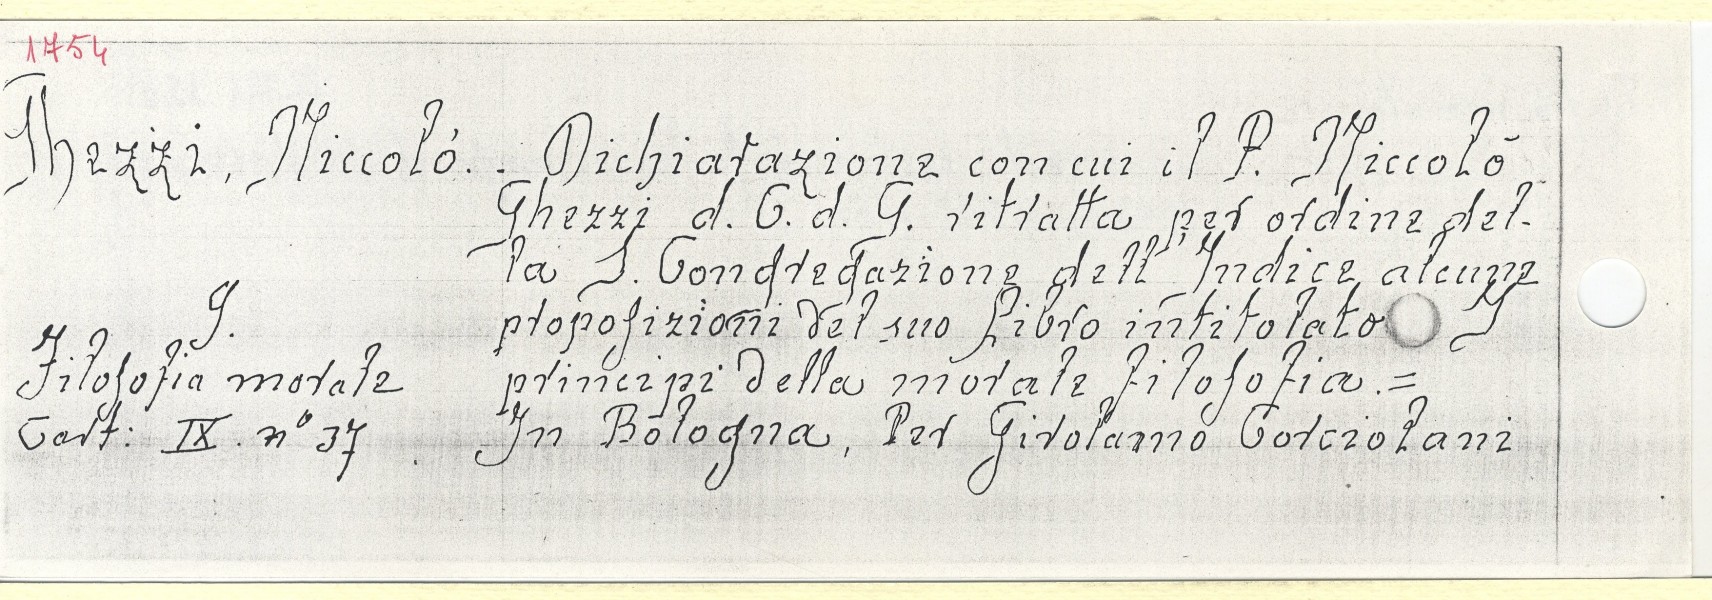 1754
Ghezzi, Niccoló. . Dichiarazione con cui il P. Niccolò
Ghezzi d. C. d. G. ritratta per ordine del-
la S. Congregazione dell'Indice alcune
G. proposizioni del suo Libro intitolato I
Filosofia morale principi della morale filosofia.=
Cart. IX nº 37 In Bologna, Per Girolamo Corciolani